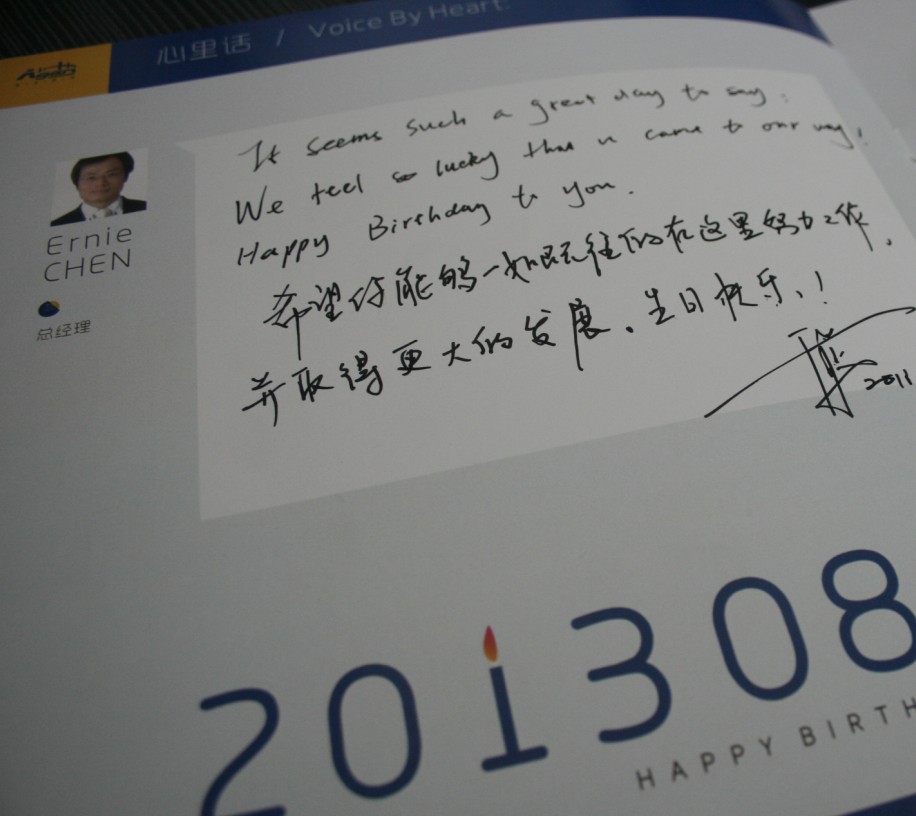 心里话 / Voice By Heart.
Ernie
CHEN
总经理
It seems such a great day to say:
We feel so lucky that u came to our way!
Happy Birthday to you.
希望你能够一如既往的在这里努力工作,
并取得更大的发展、生日快乐、!
201308
HAPPY BIRTH